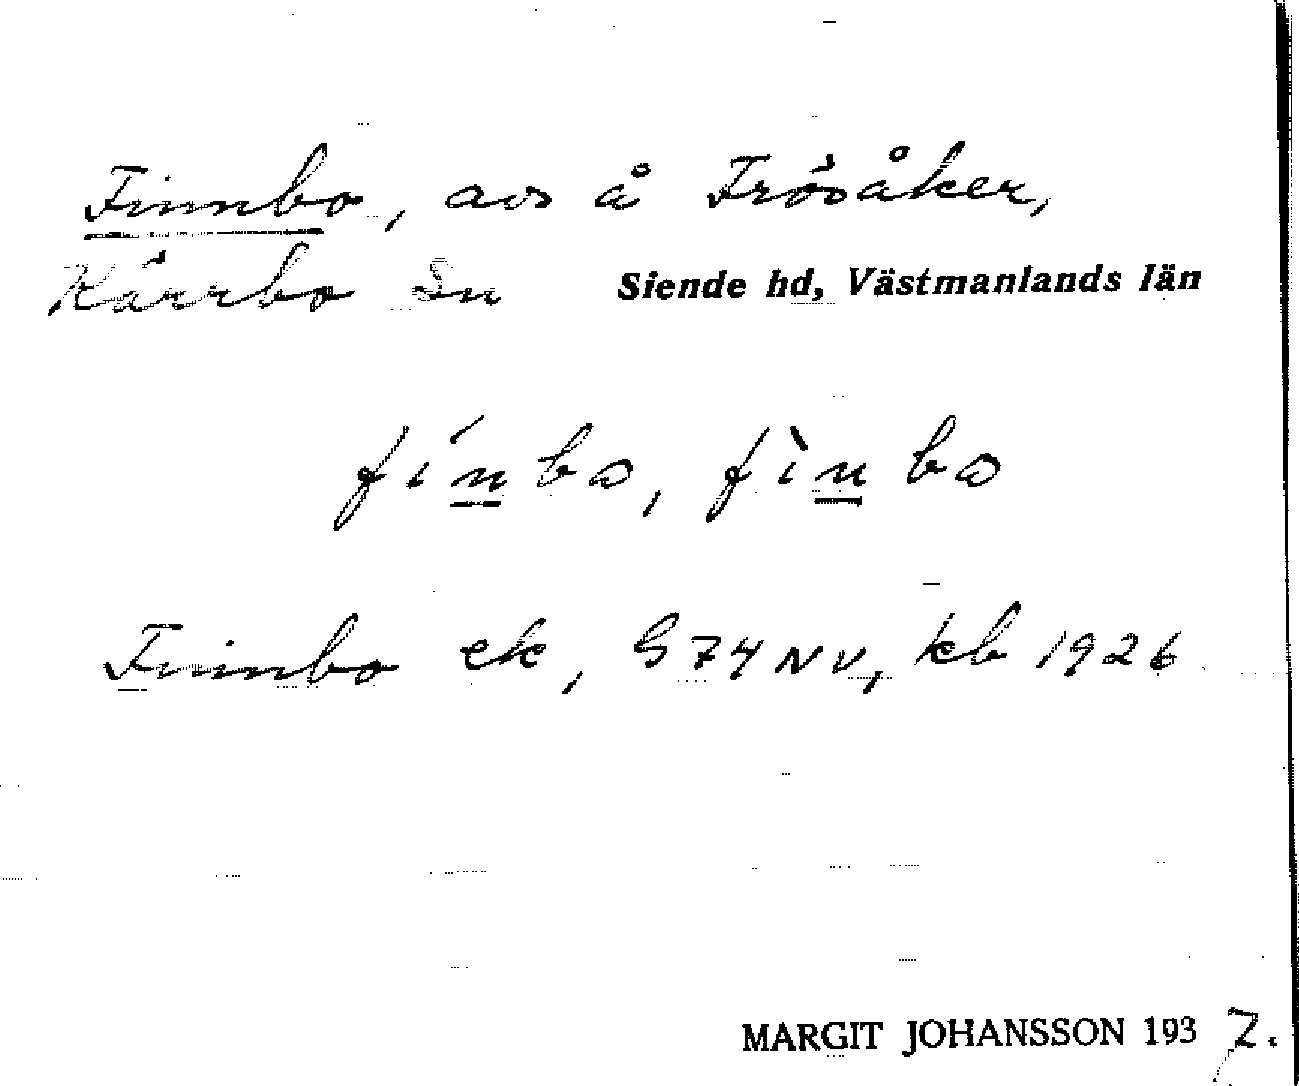 Finnbo, avs å Frösåker,
Kärrbo sn Siende hd, Västmanlands län
fínbo, fìnbo
Finnbo ek, G74NV, kb 1926
MARGIT JOHANSSON 1937.